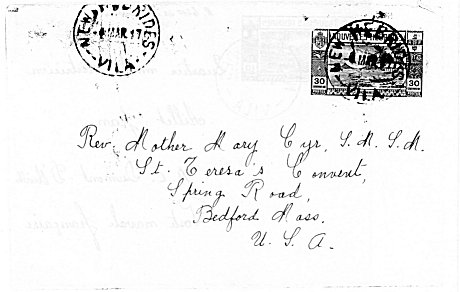 NEW HEBRIDES
MAR 17
VILA
NOUVELLES
30 30
NEW HEBRIDES
VILA
Rev. Mother Mary Cyr, S.M.S.M.
St. Teresa's Convent,
Spring Road,
Bedford Mass.
U.S.A.